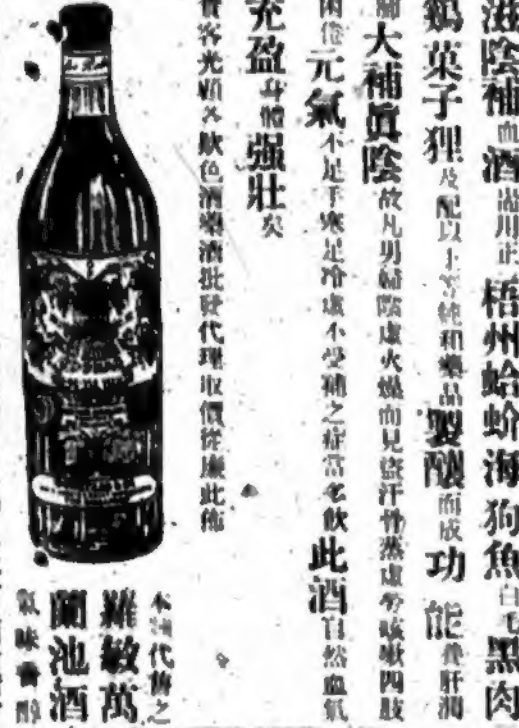 滋陰補血酒溫用正梧州蛤蚧海狗魚白毛黑肉
鷄菓子狸及配以上等純和藥品製釀而成功能養肝潤
肺大補眞陰故凡男婦陰虛火燥而見盜汗骨蒸虛勞咳嗽四肢
困倦元氣不足手寒足冷虛不受補之症當多飲此酒自然血氣
充盈身體强壯矣
貴客光顧各欵色酒藥酒批發代理取價從廉此佈
本號代售之
羅敏萬
蘭池酒
氣味香醇